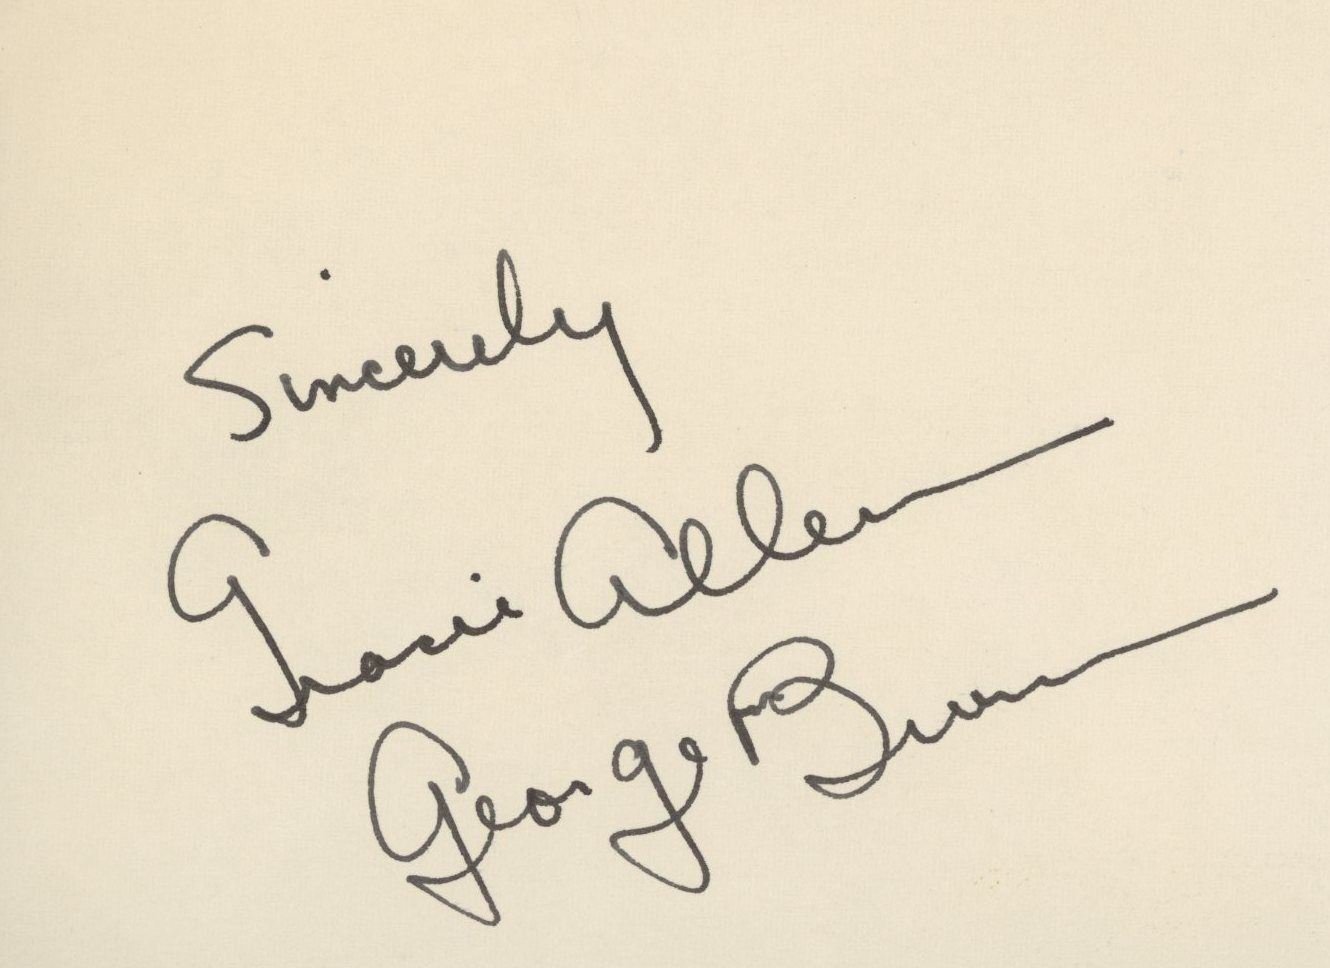 Sincerely
Gracie Allen
George Burns